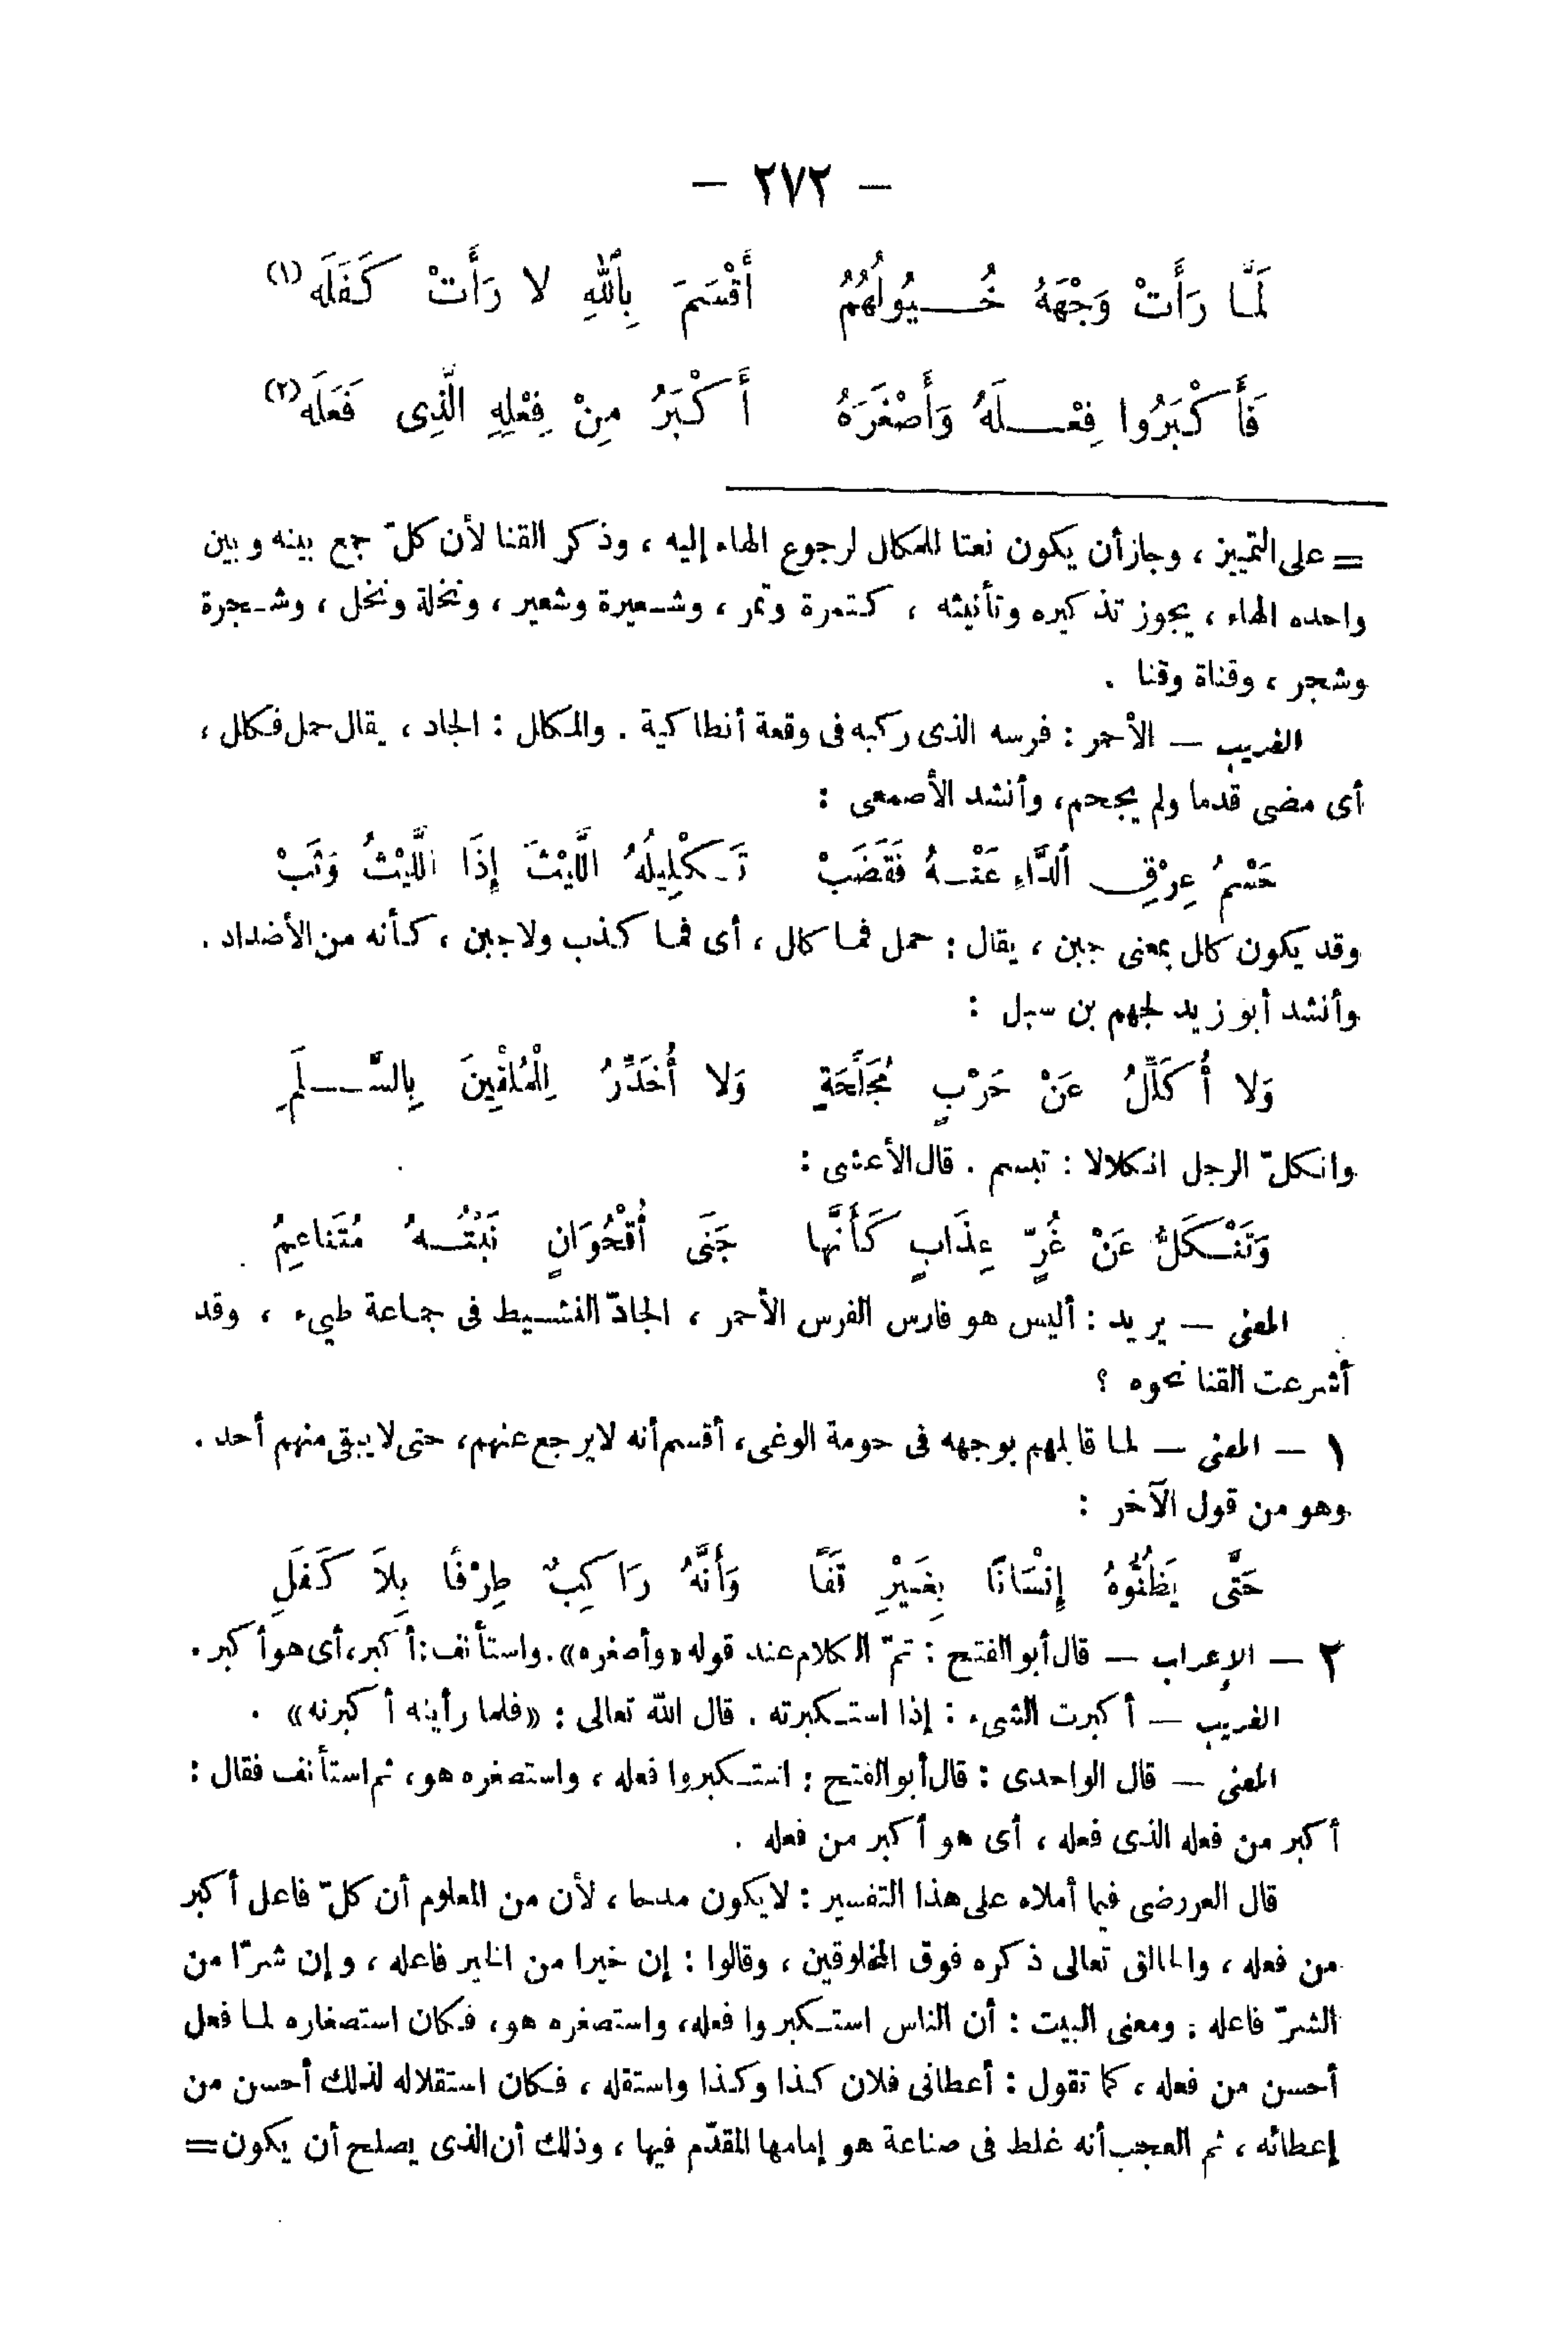 — ٢٧٢ —
لَمَّا رَأَتْ وَجْهَهُ خُيُولُهُمُ أَقْسَمَ بِٱللهِ لا رَأَتْ كَفَلَه (١)
فَأَكْبَرُوا فِعْلَهُ وَأَصْغَرَهُ أَكْبَرُ مِنْ فِعْلِهِ الَّذِى فَعَلَه (٢)
= على التمييز ، وجاز أن يكون نعتا للمكال لرجوع الهاء إليه ، وذكر القنا لأن كلّ جمع بينه وبين
واحده الهاء ، يجوز تذكيره وتأنيثه ، كتمرة وتمر ، وشعيرة وشعير ، ونخلة ونخل ، وشجرة
وشجر ، وقناة وقنا .
الغريب — الأحمر : فرسه الذى ركبه فى وقعة أنطاكية . والمكال : الجاد ، يقال حمل فكال ،
أى مضى قدما ولم يجحم ، وأنشد الأصمعى :
حَسْمُ عِرْقِ ٱلدَّاءِ عَنْهُ فَقَضَبْ تَكْلِيلُهُ اللَّيْثَ إِذَا اللَّيْثُ وَثَبْ
وقد يكون كال بمعنى جبن ، يقال : حمل فما كال ، أى فما كذب ولا جبن ، كأنه من الأضداد .
وأنشد أبو زيد لجهم بن سبل :
وَلا أُكَلِّلُ عَنْ حَرْبٍ مُجَلِّحَةٍ وَلا أُخَدِّرُ لِلْمُلْقِينَ بِالسَّلَمِ
وانكلّ الرجل انكلالا : تبسم . قال الأعشى :
وَتَنْكَلُّ عَنْ غُرٍّ عِذَابٍ كَأَنَّهَا جَنَى أُقْحُوَانٍ نَبْتُهُ مُتَنَاعِمُ
المعنى — يريد : أليس هو فارس الفرس الأحمر ، الجادّ النشيط فى جماعة طيىء ، وقد
أشرعت القنا نحوه ؟
١ — المعنى — لما قابلهم بوجهه فى حومة الوغى ، أقسم أنه لا يرجع عنهم ، حتى لا يبقى منهم أحد .
وهو من قول الآخر :
حَتَّى يَظُنُّوهُ إِنْسَانًا بِغَيْرِ قَفًا وَأَنَّهُ رَاكِبٌ طِرْفًا بِلاَ كَفَلِ
٢ — الإعراب — قال أبو الفتح : تمّ الكلام عند قوله «وأصغره» . واستأنف : أكبر ، أى هو أكبر .
الغريب — أكبرت الشىء : إذا استكبرته . قال الله تعالى : «فلما رأينه أكبرنه» .
المعنى — قال الواحدى : قال أبو الفتح : استكبروا فعله ، واستصغره هو ، ثم استأنف فقال :
أكبر من فعله الذى فعله ، أى هو أكبر من فعله .
قال العروضى فيما أملاه على هذا التفسير : لا يكون مدحا ، لأن من المعلوم أن كلّ فاعل أكبر
من فعله ، والخالق تعالى ذكره فوق المخلوقين ، وقالوا : إن خيرا من الخير فاعله ، وإن شرّا من
الشرّ فاعله . ومعنى البيت : أن الناس استكبروا فعله ، واستصغره هو ، فكان استصغاره لما فعل
أحسن من فعله ، كما تقول : أعطانى فلان كذا وكذا واستقله ، فكان استقلاله لذلك أحسن من
إعطائه ، ثم العجب أنه غلط فى صناعة هو إمامها المقدّم فيها ، وذلك أن الذى يصلح أن يكون =